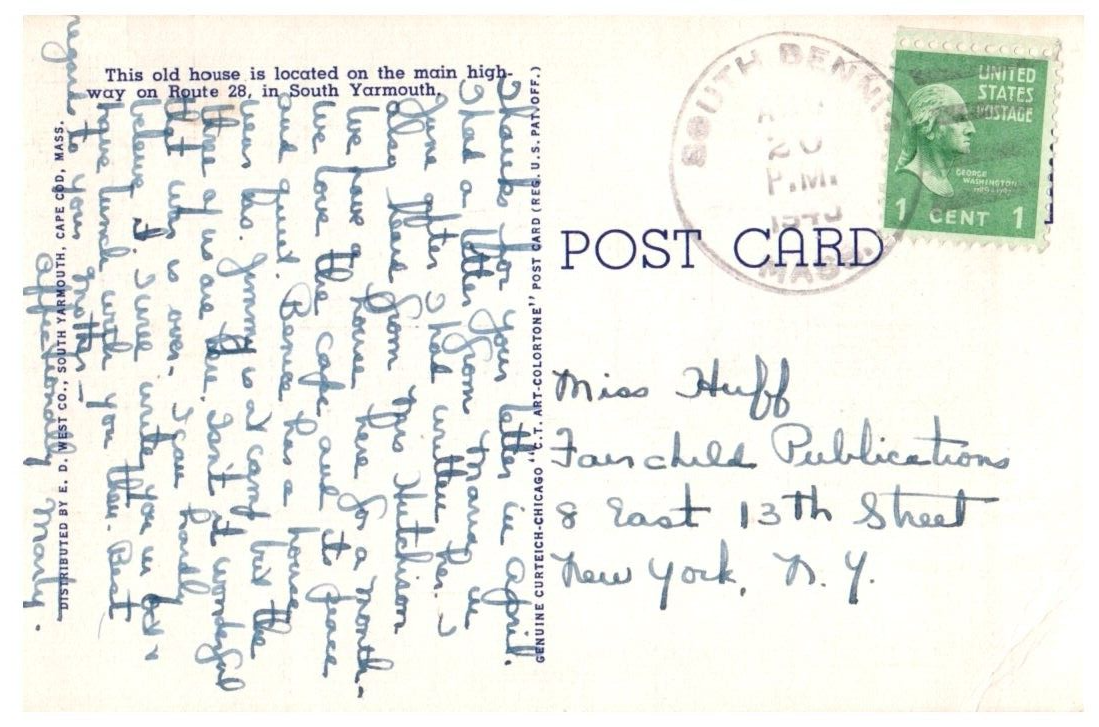 This old house is located on the main high-
way on Route 28, in South Yarmouth.
Thanks for your letter in April.
I had a letter from Marion in
June after I had written her. I
also hear from Mrs Hutchison
We have a house here for a month -
We love the cape and it's peace
and quiet. Bernice has a house
near us. is a camp but the
three of us are here. Isn't it wonderful
that war is over. I can hardly
believe it. write you in Oct &
have lunch with you then. Best
regards to your mother -
Affectionally
DISTRIBUTED BY E. D. WEST CO., SOUTH YARMOUTH, CAPE COD, MASS.
GENUINE CURTEICH-CHICAGO "C.T. ART-COLORTONE" POST CARD (REG. U.S. PAT. OFF.)
SOUTH
20
P.M.
MASS
UNITED
STATES
POSTAGE
GEORGE
WASHINGTON
1 CENT 1
POST CARD
Miss Huff
Fairchild Publications
8 East 13th Street
New York, N. Y.